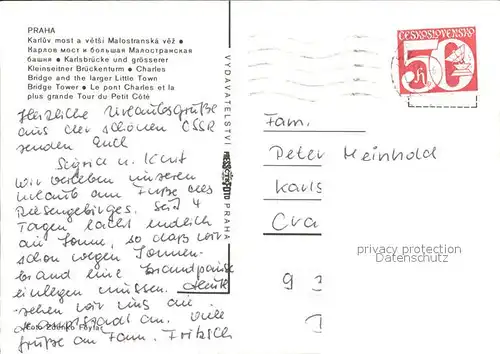 PRAHA
Karlův most a větší Malostranská věž •
Карлов мост и большая Малостранская
башня • Karlsbrücke und grösserer
Kleinseitner Brückenturm • Charles
Bridge and the larger Little Town
Bridge Tower • Le pont Charles et la
plus grande Tour du Petit Côté
Herzliche Urlaubsgrüße
aus der schönen ČSSR
senden Euch
Sigrid u. Kurt
Wir verleben unseren
Urlaub am Fuße des
Riesengebirges. Seit 4
Tagen lacht endlich
die Sonne, so daß wir
schon wegen Sonnen-
brand eine Brandpause
einlegen mussen. Heute
sehen wir uns die
Hauptstadt an. Viele
Grüße an Fam. Fritzsch
Foto Zdenko Feyfar
VYDAVATELSTVÍ
PRESSFOTO
PRAHA
ČESKOSLOVENSKO
50 h
Fam.
Peter Meinhold
Karls
Cra
privacy protection
Datenschutz
9